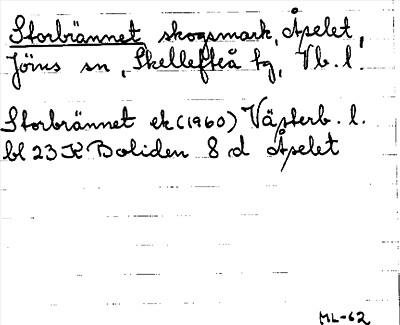 Storbrännet skogsmark, Åselet,
Jörns sn, Skellefteå tg, Vb. l.
Storbrännet ek (1960) Västerb. l.
bl 23 K Boliden 8 d Åselet
ML-62